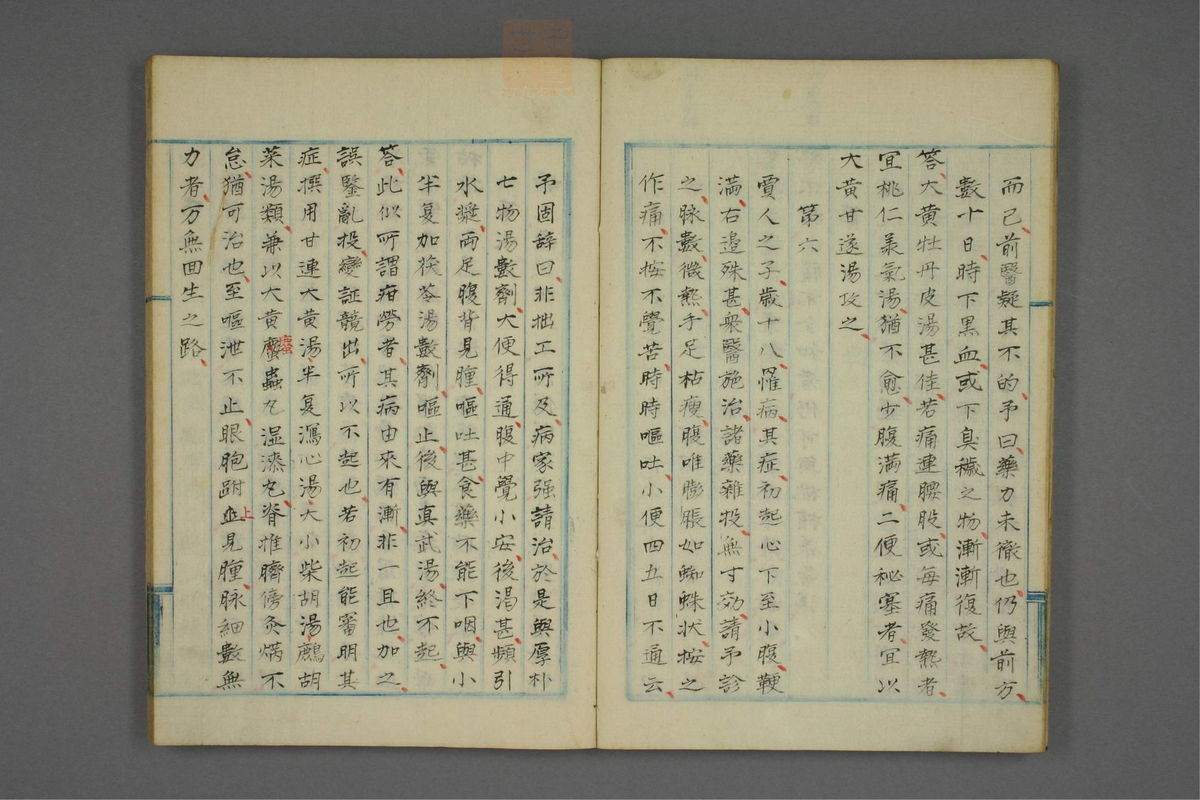 而已前醫疑其不的予曰藥力未徹也仍與前方
數十日時下黑血或下臭穢之物漸漸復故
答大黄牡丹皮湯甚佳若痛連腰股或每痛發熱者
宜桃仁羕氣湯猶不愈少腹满痛二便秘塞者宜以
大黄甘遂湯攻之
第六
賈人之子歳十八罹病其症初起心下至小腹鞕
满右邉殊甚衆醫施治諸藥雜投無寸効請予診
之脉數微熱手足枯瘦腹唯膨脹如蜘蛛状按之
作痛不按不覺苦時時嘔吐小便四五日不通云
予固辞曰非拙工所及病家强請治於是與厚朴
七物湯數劑大便得通腹中覺小安後渇甚頻引
水漿両足腹背見腫嘔吐甚食藥不能下咽與小
半夏加茯苓湯數劑嘔止後與真武湯終不起
答此似所謂疳勞者其病由來有漸非一旦也加之
誤醫亂投變証競出所以不起也若初起能審明其
症撰用甘連大黄湯半夏瀉心湯大小柴胡湯鷓胡
菜湯類兼以大黄䗪蟲丸湿漆丸脊推臍傍灸焫不
怠猶可治也至嘔泄不止眼胞跗上並見腫脉細數無
力者万無回生之路